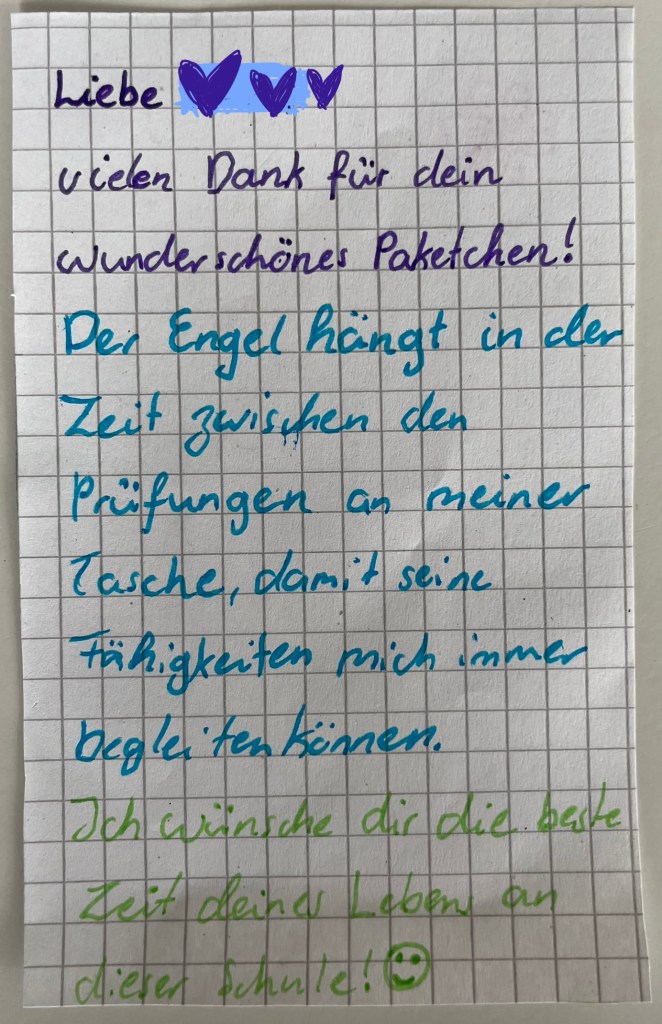 Liebe
vielen Dank für dein
wunderschönes Paketchen!
Der Engel hängt in der
Zeit zwischen den
Prüfungen an meiner
Tasche, damit seine
Fähigkeiten mich immer
begleiten können.
Ich wünsche dir die beste
Zeit deines Lebens an
dieser Schule!